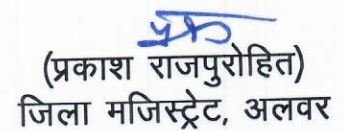 (प्रकाश राजपुरोहित)
जिला मजिस्ट्रेट, अलवर